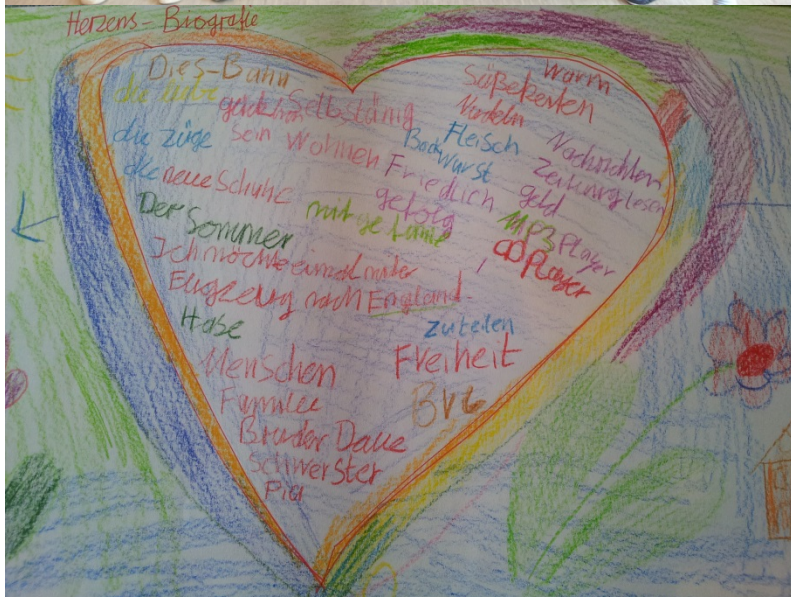 Herzens-Biografie
Dies-Bahn
die liebe
Selbstänig
die züge
Sein Wohnen
die neue Schuhe
Der Sommer
mit getamt
Ich möchte einmal mit der
Flugzeug nach England.
Habe
Menschen
Familie
Bruder
Schwerster
Pia
Warm
Süßekeiten
Nudeln
Fleisch
Bock Wurst
Friedlich
Nachrichten
Zeitung lesen
geld
MP3 Player
CD Player
zuteilen
Freiheit
BVG